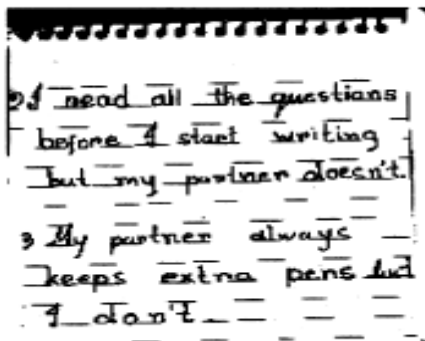 2) I read all the questians
before I start writing
but my partner doesn't.
3 My partner always
keeps extra pens but
I don't.